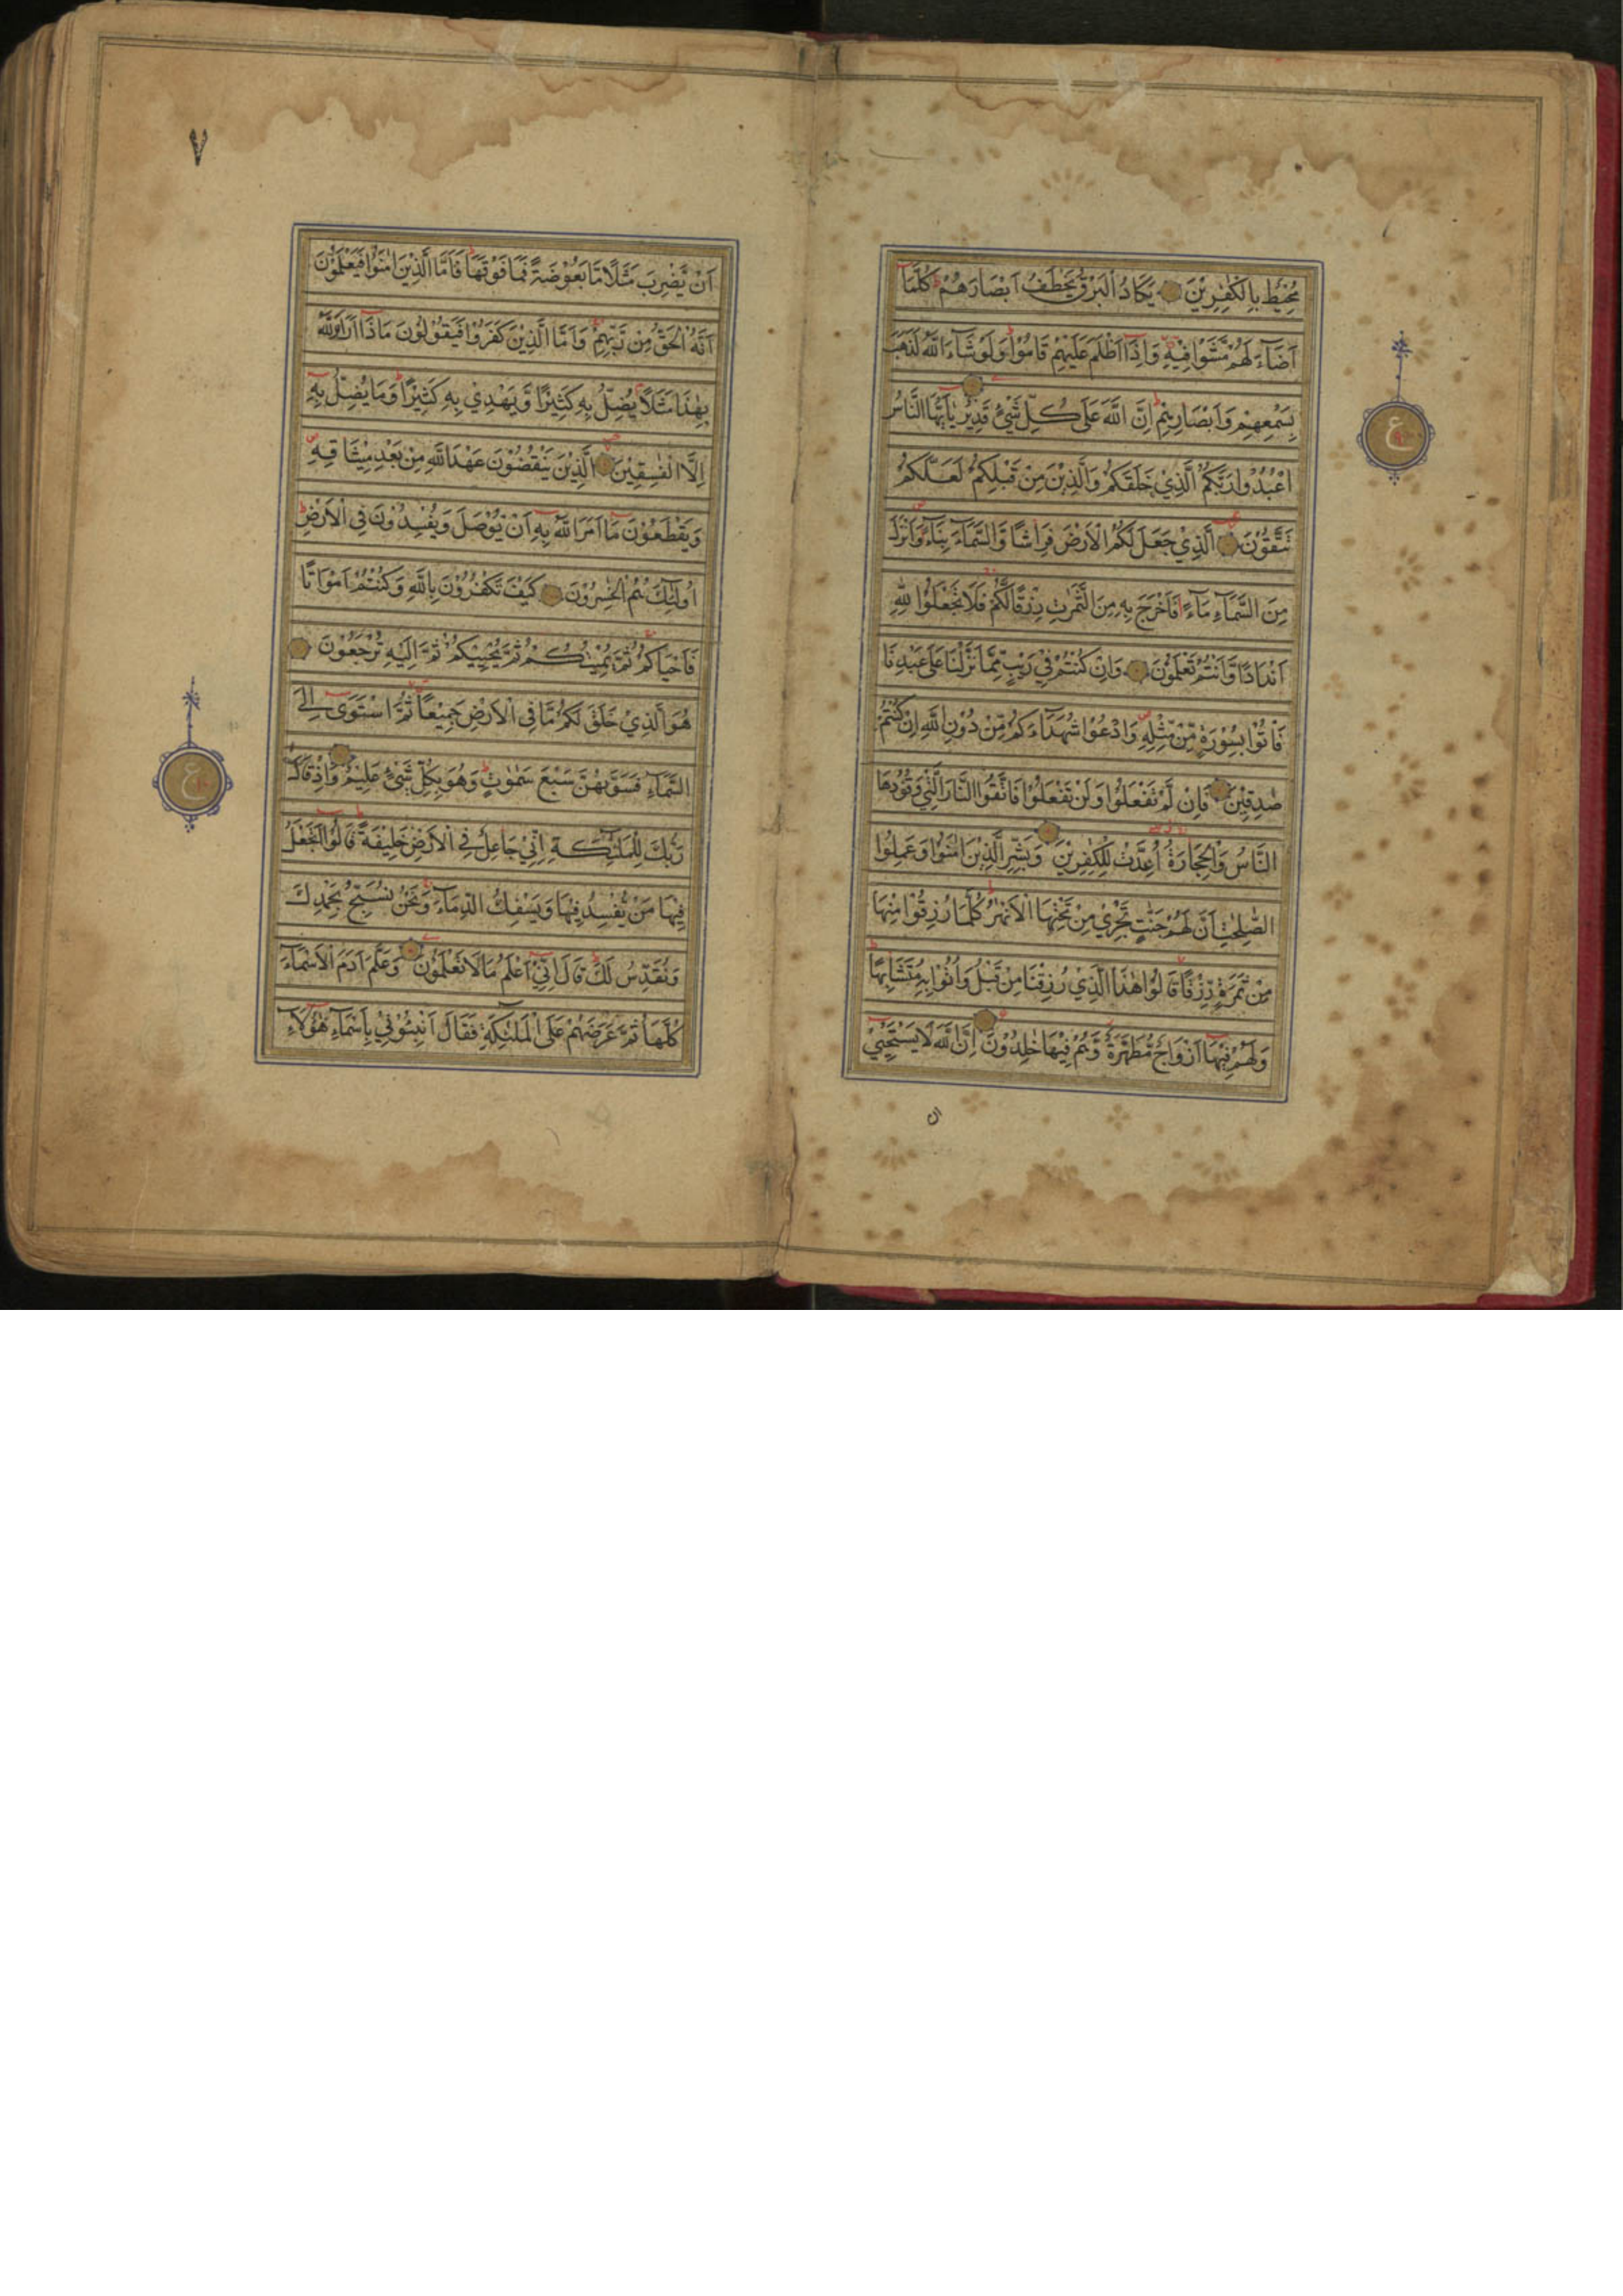 مُحِيْطٌ بِالْكٰفِرِيْنَ يَكَادُ الْبَرْقُ يَخْطَفُ اَبْصَارَهُمْ كُلَّمَاۤ
اَضَاۤءَ لَهُمْ مَّشَوْا فِيْهِ وَاِذَاۤ اَظْلَمَ عَلَيْهِمْ قَامُوْا وَلَوْ شَاۤءَ اللّٰهُ لَذَهَبَ
بِسَمْعِهِمْ وَاَبْصَارِهِمْ اِنَّ اللّٰهَ عَلٰى كُلِّ شَيْءٍ قَدِيْرٌ يٰۤاَيُّهَا النَّاسُ
اعْبُدُوْا رَبَّكُمُ الَّذِيْ خَلَقَكُمْ وَالَّذِيْنَ مِنْ قَبْلِكُمْ لَعَلَّكُمْ
تَتَّقُوْنَ الَّذِيْ جَعَلَ لَكُمُ الْاَرْضَ فِرَاشًا وَّالسَّمَاۤءَ بِنَاۤءً وَّاَنْزَلَ
مِنَ السَّمَاۤءِ مَاۤءً فَاَخْرَجَ بِهِ مِنَ الثَّمَرٰتِ رِزْقًا لَّكُمْ فَلَا تَجْعَلُوْا لِلّٰهِ
اَنْدَادًا وَّاَنْتُمْ تَعْلَمُوْنَ وَاِنْ كُنْتُمْ فِيْ رَيْبٍ مِّمَّا نَزَّلْنَا عَلٰى عَبْدِنَا
فَاْتُوْا بِسُوْرَةٍ مِّنْ مِّثْلِهِ وَادْعُوْا شُهَدَاۤءَكُمْ مِّنْ دُوْنِ اللّٰهِ اِنْ كُنْتُمْ
صٰدِقِيْنَ فَاِنْ لَّمْ تَفْعَلُوْا وَلَنْ تَفْعَلُوْا فَاتَّقُوا النَّارَ الَّتِيْ وَقُوْدُهَا
النَّاسُ وَالْحِجَارَةُ اُعِدَّتْ لِلْكٰفِرِيْنَ وَبَشِّرِ الَّذِيْنَ اٰمَنُوْا وَعَمِلُوا
الصّٰلِحٰتِ اَنَّ لَهُمْ جَنّٰتٍ تَجْرِيْ مِنْ تَحْتِهَا الْاَنْهٰرُ كُلَّمَا رُزِقُوْا مِنْهَا
مِنْ ثَمَرَةٍ رِّزْقًا قَالُوْا هٰذَا الَّذِيْ رُزِقْنَا مِنْ قَبْلُ وَاُتُوْا بِهِ مُتَشَابِهًا
وَلَهُمْ فِيْهَاۤ اَزْوَاجٌ مُّطَهَّرَةٌ وَّهُمْ فِيْهَا خٰلِدُوْنَ اِنَّ اللّٰهَ لَا يَسْتَحْيٖ
ان
ع
٧
اَنْ يَّضْرِبَ مَثَلًا مَّا بَعُوْضَةً فَمَا فَوْقَهَا فَاَمَّا الَّذِيْنَ اٰمَنُوْا فَيَعْلَمُوْنَ
اَنَّهُ الْحَقُّ مِنْ رَّبِّهِمْ وَاَمَّا الَّذِيْنَ كَفَرُوْا فَيَقُوْلُوْنَ مَاذَاۤ اَرَادَ اللّٰهُ
بِهٰذَا مَثَلًا يُضِلُّ بِهِ كَثِيْرًا وَّيَهْدِيْ بِهِ كَثِيْرًا وَمَا يُضِلُّ بِهِ
اِلَّا الْفٰسِقِيْنَ الَّذِيْنَ يَنْقُضُوْنَ عَهْدَ اللّٰهِ مِنْ بَعْدِ مِيْثَاقِهِ
وَيَقْطَعُوْنَ مَاۤ اَمَرَ اللّٰهُ بِهِ اَنْ يُّوْصَلَ وَيُفْسِدُوْنَ فِي الْاَرْضِ
اُولٰۤئِكَ هُمُ الْخٰسِرُوْنَ كَيْفَ تَكْفُرُوْنَ بِاللّٰهِ وَكُنْتُمْ اَمْوَاتًا
فَاَحْيَاكُمْ ثُمَّ يُمِيْتُكُمْ ثُمَّ يُحْيِيْكُمْ ثُمَّ اِلَيْهِ تُرْجَعُوْنَ
هُوَ الَّذِيْ خَلَقَ لَكُمْ مَّا فِي الْاَرْضِ جَمِيْعًا ثُمَّ اسْتَوٰى اِلَى
السَّمَاۤءِ فَسَوّٰىهُنَّ سَبْعَ سَمٰوٰتٍ وَهُوَ بِكُلِّ شَيْءٍ عَلِيْمٌ وَاِذْ قَالَ
رَبُّكَ لِلْمَلٰۤئِكَةِ اِنِّيْ جَاعِلٌ فِي الْاَرْضِ خَلِيْفَةً قَالُوْا اَتَجْعَلُ
فِيْهَا مَنْ يُّفْسِدُ فِيْهَا وَيَسْفِكُ الدِّمَاۤءَ وَنَحْنُ نُسَبِّحُ بِحَمْدِكَ
وَنُقَدِّسُ لَكَ قَالَ اِنِّيْ اَعْلَمُ مَا لَا تَعْلَمُوْنَ وَعَلَّمَ اٰدَمَ الْاَسْمَاۤءَ
كُلَّهَا ثُمَّ عَرَضَهُمْ عَلَى الْمَلٰۤئِكَةِ فَقَالَ اَنْبِئُوْنِيْ بِاَسْمَاۤءِ هٰۤؤُلَاۤءِ
ع